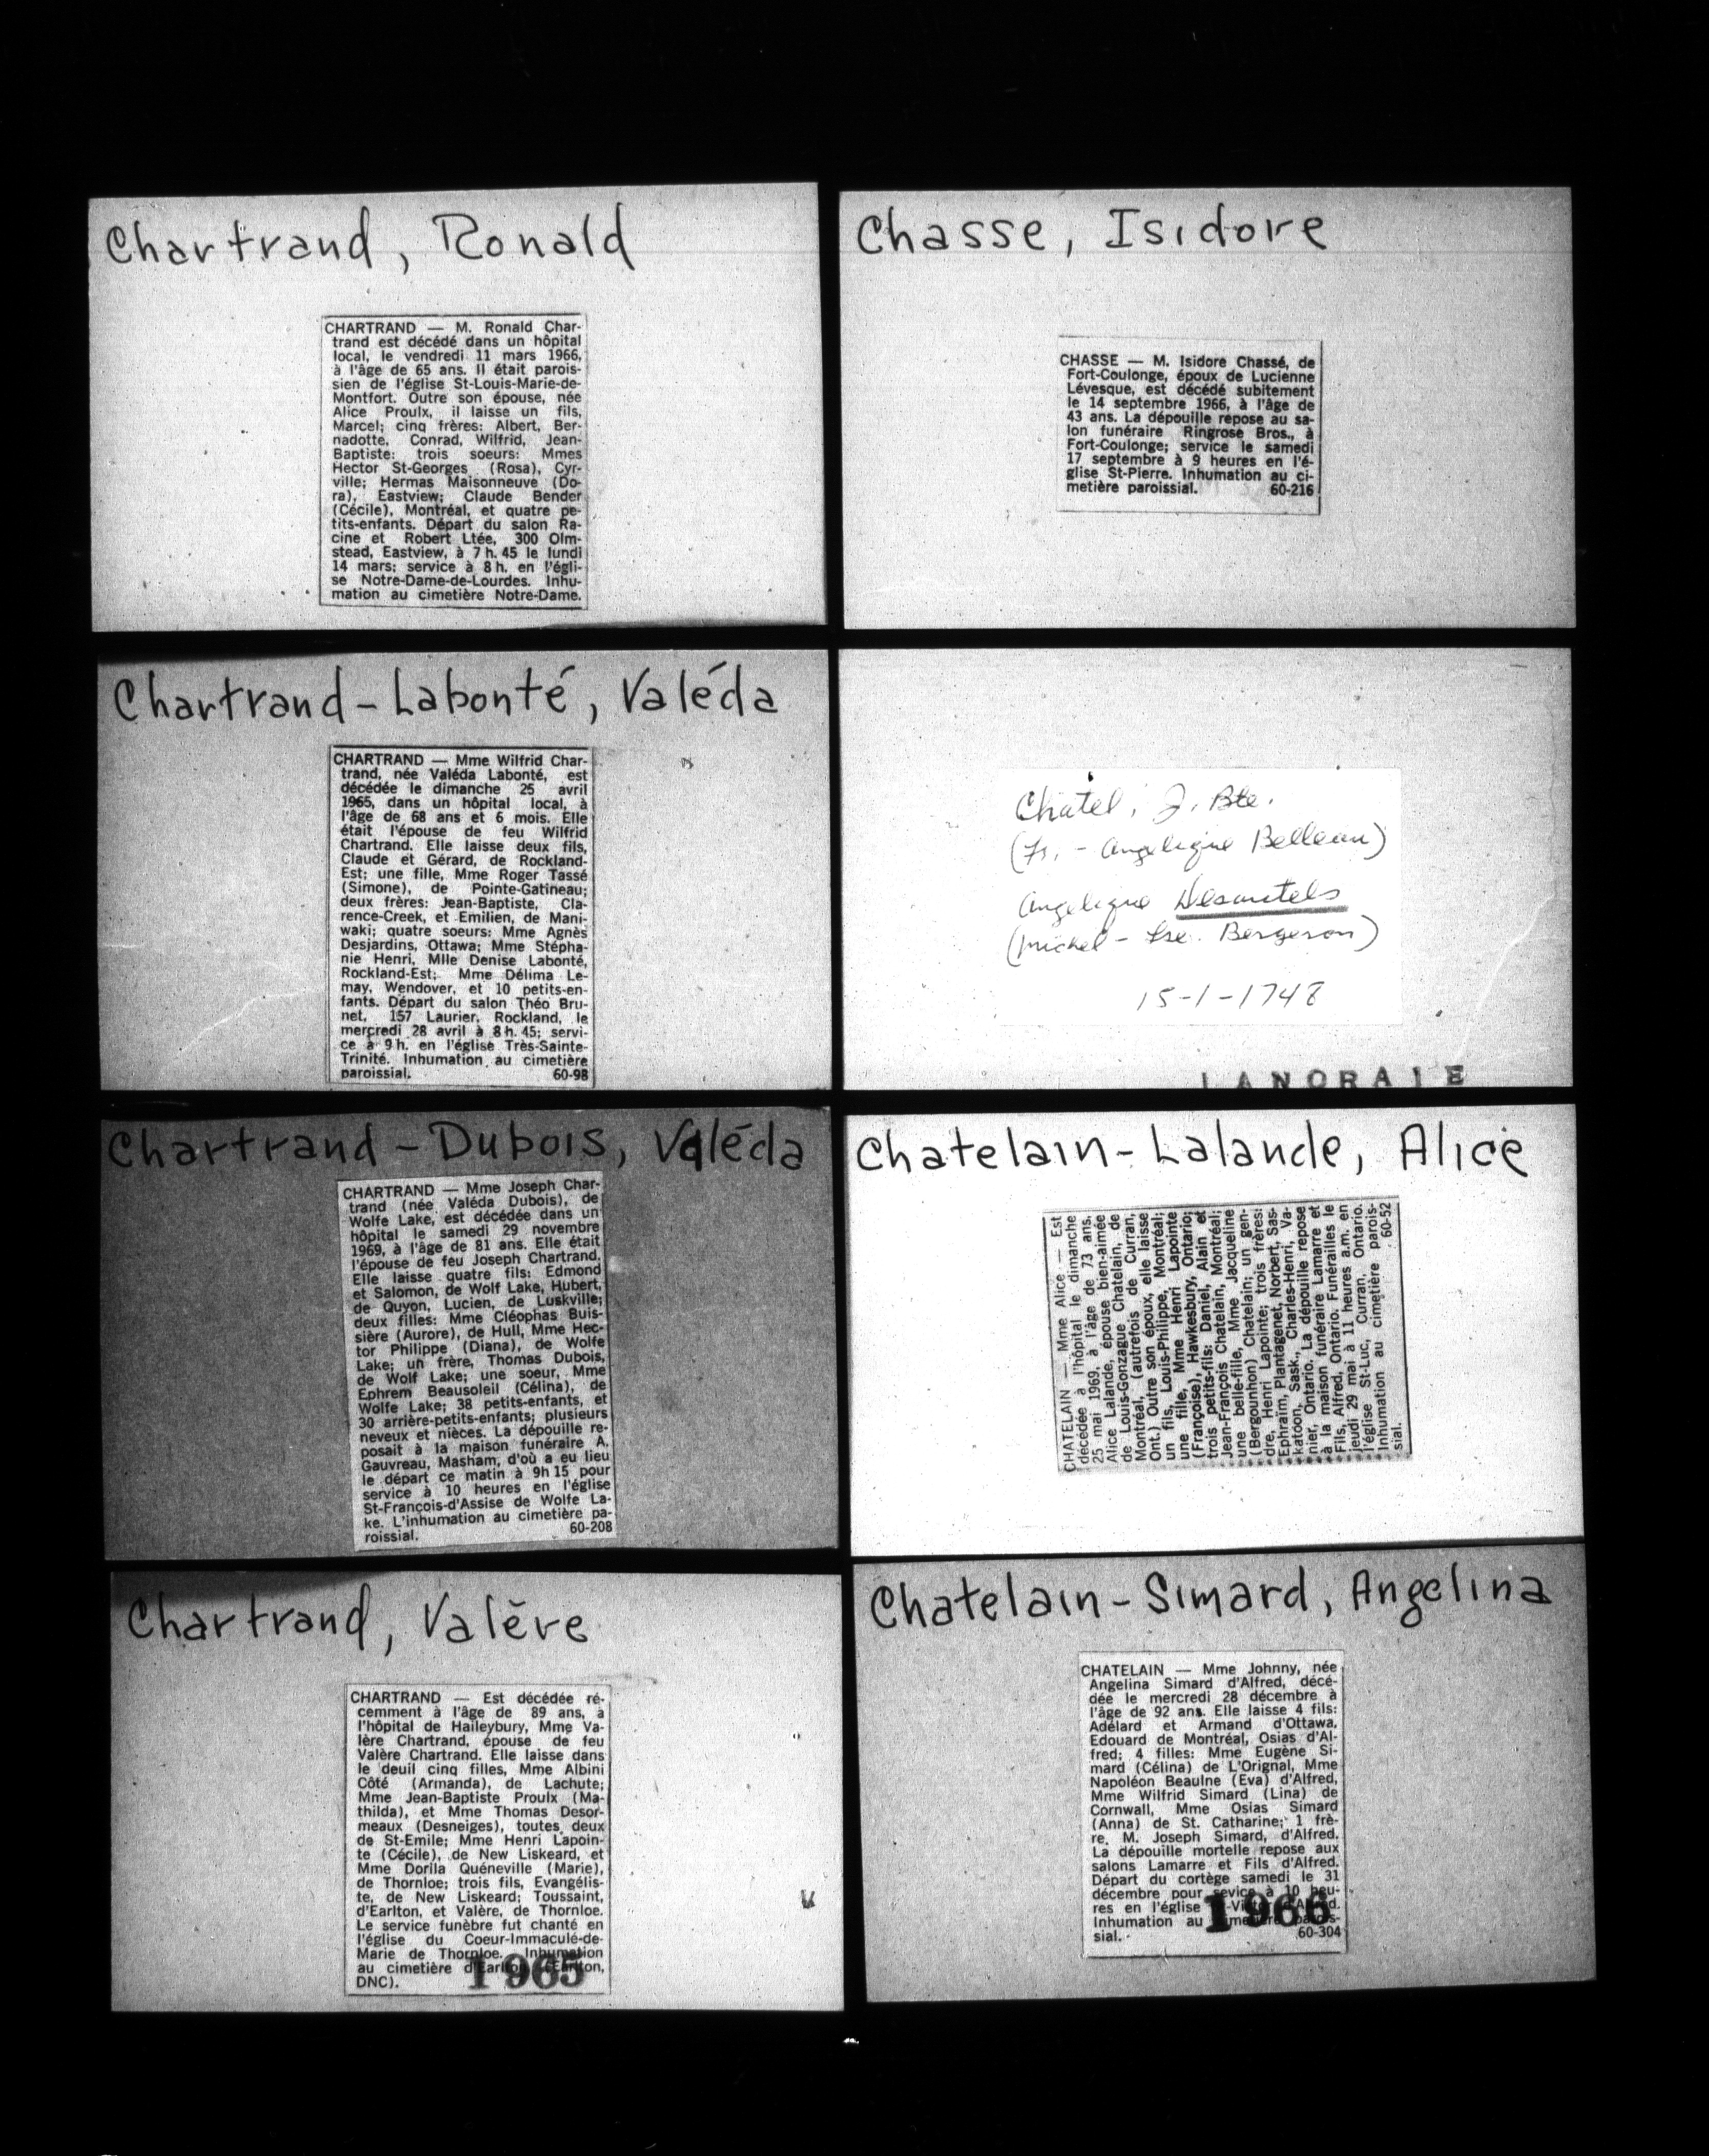 Chartrand, Ronald
CHARTRAND — M. Ronald Char-
trand est décédé dans un hôpital
local, le vendredi 11 mars 1966,
à l'âge de 65 ans. Il était parois-
sien de l'église St-Louis-Marie-de-
Montfort. Outre son épouse, née
Alice Proulx, il laisse un fils,
Marcel; cinq frères: Albert, Ber-
nadotte, Conrad, Wilfrid, Jean-
Baptiste; trois soeurs: Mmes
Hector St-Georges (Rosa), Cyr-
ville; Hermas Maisonneuve (Do-
ra), Eastview; Claude Bender
(Cécile), Montréal, et quatre pe-
tits-enfants. Départ du salon Ra-
cine et Robert Ltée, 300 Olm-
stead, Eastview, à 7 h. 45 le lundi
14 mars; service à 8 h. en l'égli-
se Notre-Dame-de-Lourdes. Inhu-
mation au cimetière Notre-Dame.
Chartrand-Labonté, Valéda
CHARTRAND — Mme Wilfrid Char-
trand, née Valéda Labonté, est
décédée le dimanche 25 avril
1965, dans un hôpital local, à
l'âge de 68 ans et 6 mois. Elle
était l'épouse de feu Wilfrid
Chartrand. Elle laisse deux fils,
Claude et Gérard, de Rockland-
Est; une fille, Mme Roger Tassé
(Simone), de Pointe-Gatineau;
deux frères: Jean-Baptiste, Cla-
rence-Creek, et Emilien, de Mani-
waki; quatre soeurs: Mme Agnès
Desjardins, Ottawa; Mme Stépha-
nie Henri, Mlle Denise Labonté,
Rockland-Est; Mme Délima Le-
may, Wendover, et 10 petits-en-
fants. Départ du salon Théo Bru-
net, 157 Laurier, Rockland, le
mercredi 28 avril à 8 h. 45; servi-
ce à 9 h. en l'église Très-Sainte-
Trinité. Inhumation au cimetière
paroissial. 60-98
Chartrand-Dubois, Valéda
CHARTRAND — Mme Joseph Char-
trand (née Valéda Dubois), de
Wolfe Lake, est décédée dans un
hôpital le samedi 29 novembre
1969, à l'âge de 81 ans. Elle était
l'épouse de feu Joseph Chartrand.
Elle laisse quatre fils: Edmond
et Salomon, de Wolf Lake, Hubert,
de Quyon, Lucien, de Luskville;
deux filles: Mme Cléophas Buis-
sière (Aurore), de Hull, Mme Hec-
tor Philippe (Diana), de Wolfe
Lake; un frère, Thomas Dubois,
de Wolf Lake; une soeur, Mme
Ephrem Beausoleil (Célina), de
Wolfe Lake; 38 petits-enfants, et
30 arrière-petits-enfants; plusieurs
neveux et nièces. La dépouille re-
posait à la maison funéraire A.
Gauvreau, Masham, d'où a eu lieu
le départ ce matin à 9h 15 pour
service à 10 heures en l'église
St-François-d'Assise de Wolfe La-
ke. L'inhumation au cimetière pa-
roissial. 60-208
Chartrand, Valère
CHARTRAND — Est décédée ré-
cemment à l'âge de 89 ans, à
l'hôpital de Haileybury, Mme Va-
lère Chartrand, épouse de feu
Valère Chartrand. Elle laisse dans
le deuil cinq filles, Mme Albini
Côté (Armanda), de Lachute;
Mme Jean-Baptiste Proulx (Ma-
thilda), et Mme Thomas Desor-
meaux (Desneiges), toutes deux
de St-Emile; Mme Henri Lapoin-
te (Cécile), de New Liskeard, et
Mme Dorila Quéneville (Marie),
de Thornloe; trois fils, Evangélis-
te, de New Liskeard; Toussaint,
d'Earlton, et Valère, de Thornloe.
Le service funèbre fut chanté en
l'église du Coeur-Immaculé-de-
Marie de Thornloe. Inhumation
au cimetière d'Earlton. (Earlton,
DNC).
1965
Chasse, Isidore
CHASSE — M. Isidore Chassé, de
Fort-Coulonge, époux de Lucienne
Lévesque, est décédé subitement
le 14 septembre 1966, à l'âge de
43 ans. La dépouille repose au sa-
lon funéraire Ringrose Bros., à
Fort-Coulonge; service le samedi
17 septembre à 9 heures en l'é-
glise St-Pierre. Inhumation au ci-
metière paroissial. 60-216
Chatel, J. Bte.
(Fs. - Angelique Belleau)
Angelique Desautels
(Michel - Bergeron)
15-1-1748
LANORAIE
Chatelain-Lalande, Alice
CHATELAIN — Mme Alice — Est
décédée à l'hôpital le dimanche
25 mai 1969, à l'âge de 73 ans,
Alice Lalande, épouse bien-aimée
de Louis-Gonzague Chatelain, de
Montréal, (autrefois de Curran,
Ont.) Outre son époux, elle laisse
un fils, Louis-Philippe, Montréal;
une fille, Mme Henri Lapointe
(Françoise), Hawkesbury, Ontario;
trois petits-fils: Daniel, Alain et
Jean-François Chatelain, Montréal;
une belle-fille, Mme Jacqueline
(Bergounhon) Chatelain; un gen-
dre, Henri Lapointe; trois frères:
Ephraïm, Plantagenet, Norbert, Sas-
katoon, Sask., Charles-Henri, Va-
nier, Ontario. La dépouille repose
à la maison funéraire Lamarre et
Fils, Alfred, Ontario. Funérailles le
jeudi 29 mai à 11 heures a.m. en
l'église St-Luc, Curran, Ontario.
Inhumation au cimetière parois-
sial. 60-52
Chatelain-Simard, Angelina
CHATELAIN — Mme Johnny, née
Angelina Simard d'Alfred, décé-
dée le mercredi 28 décembre à
l'âge de 92 ans. Elle laisse 4 fils:
Adélard et Armand d'Ottawa,
Edouard de Montréal, Osias d'Al-
fred; 4 filles: Mme Eugène Si-
mard (Célina) de L'Orignal, Mme
Napoléon Beaulne (Eva) d'Alfred,
Mme Wilfrid Simard (Lina) de
Cornwall, Mme Osias Simard
(Anna) de St. Catharine; 1 frè-
re, M. Joseph Simard, d'Alfred.
La dépouille mortelle repose aux
salons Lamarre et Fils d'Alfred.
Départ du cortège samedi le 31
décembre pour sevice à 10 heu-
res en l'église d'Alfred.
Inhumation au cimetière parois-
sial. 60-304
1966